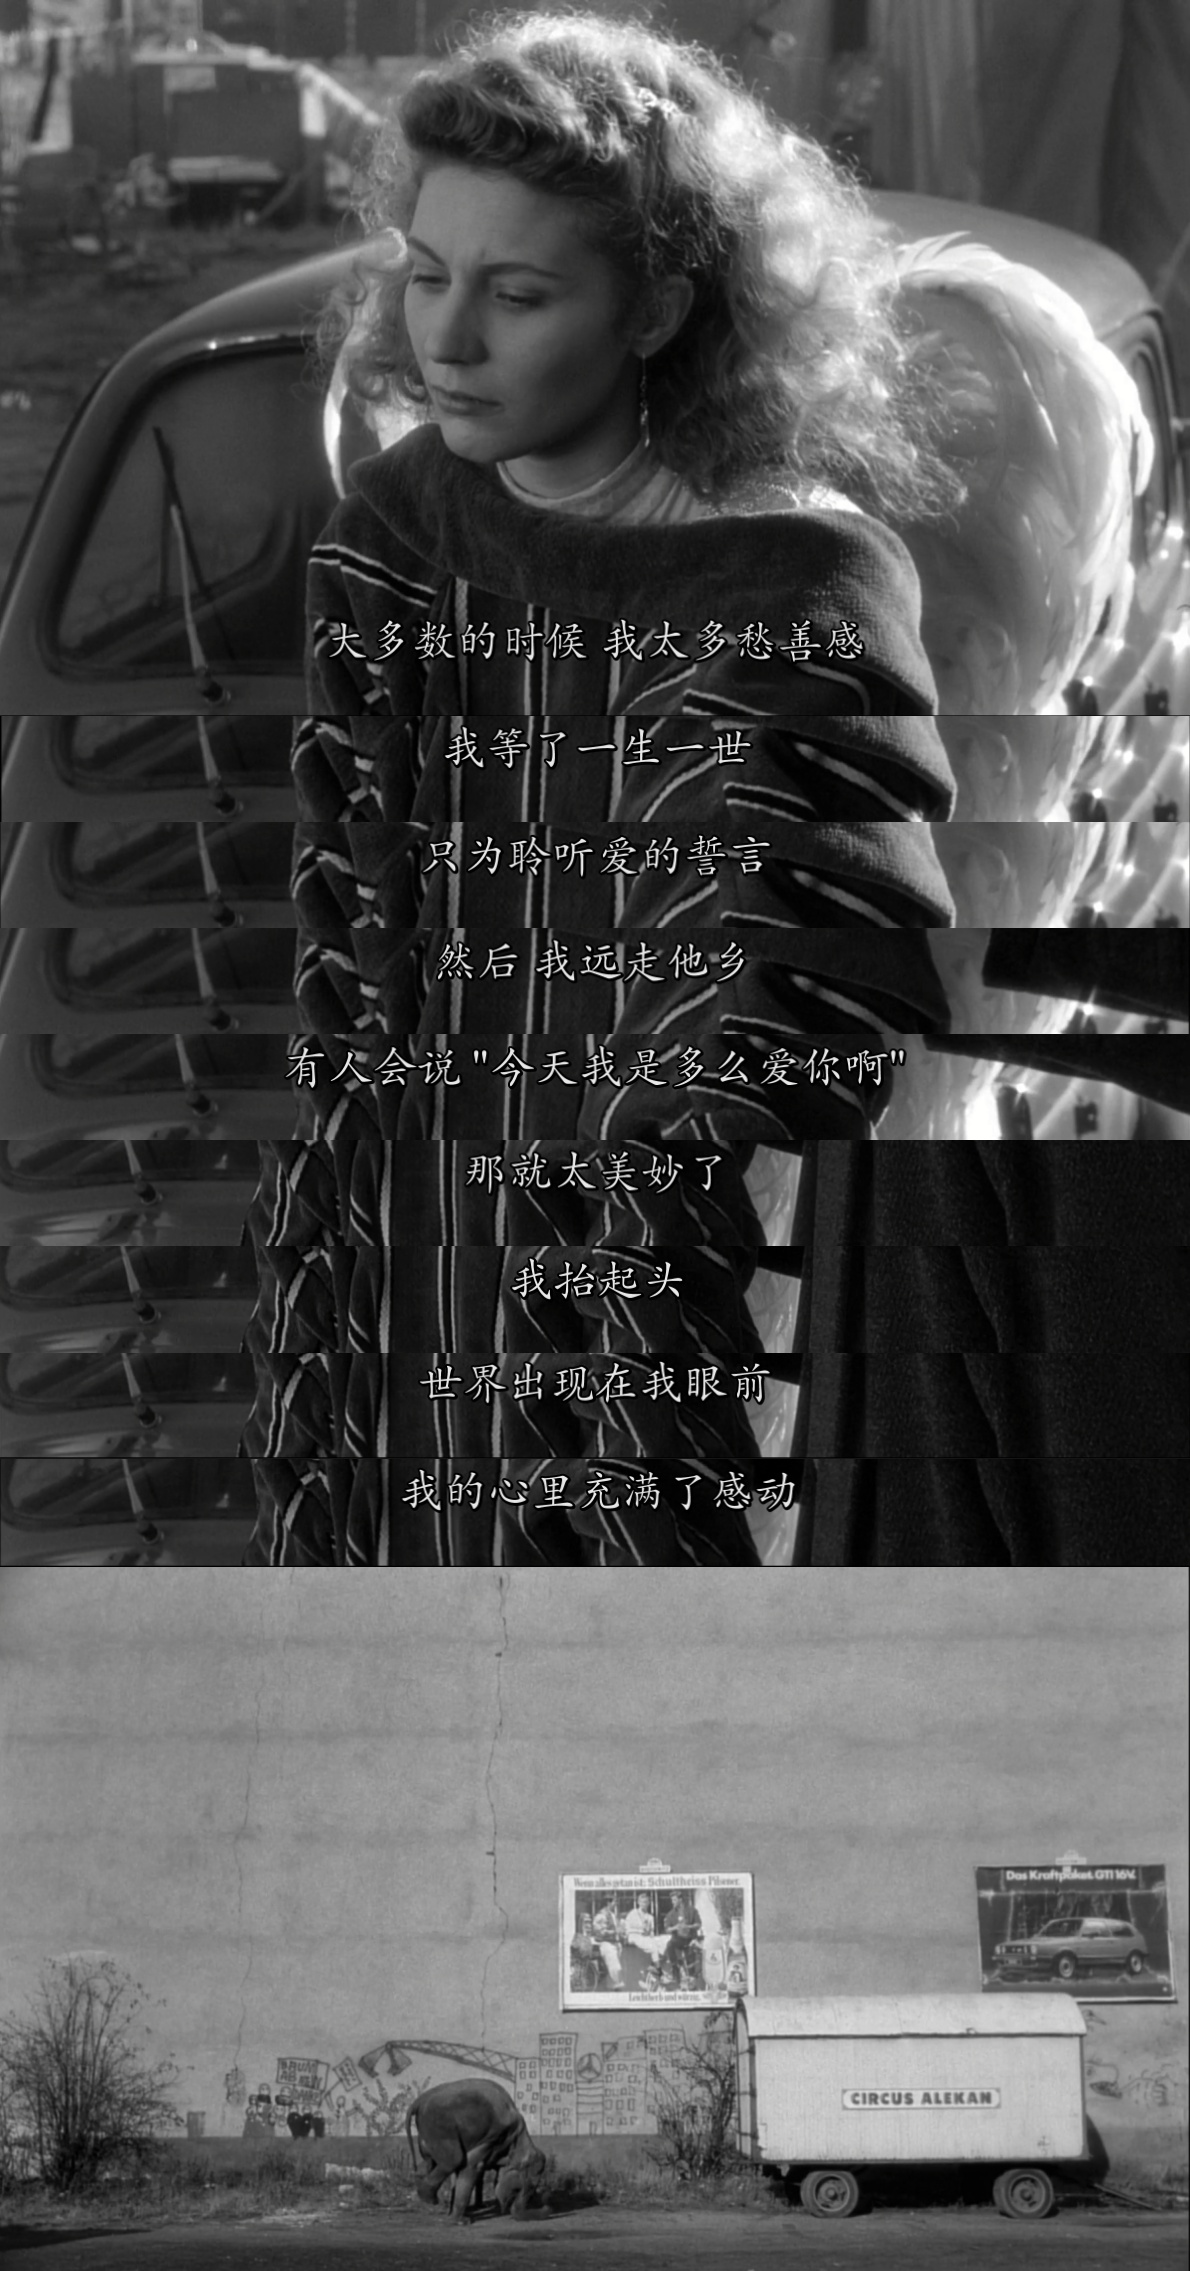 大多数的时候 我太多愁善感
我等了一生一世
只为聆听爱的誓言
然后 我远走他乡
有人会说 "今天我是多么爱你啊"
那就太美妙了
我抬起头
世界出现在我眼前
我的心里充满了感动
Wenn alles getan ist: Schultheiss Pilsener.
Das Kraftpaket. GTI 16V.
CIRCUS ALEKAN